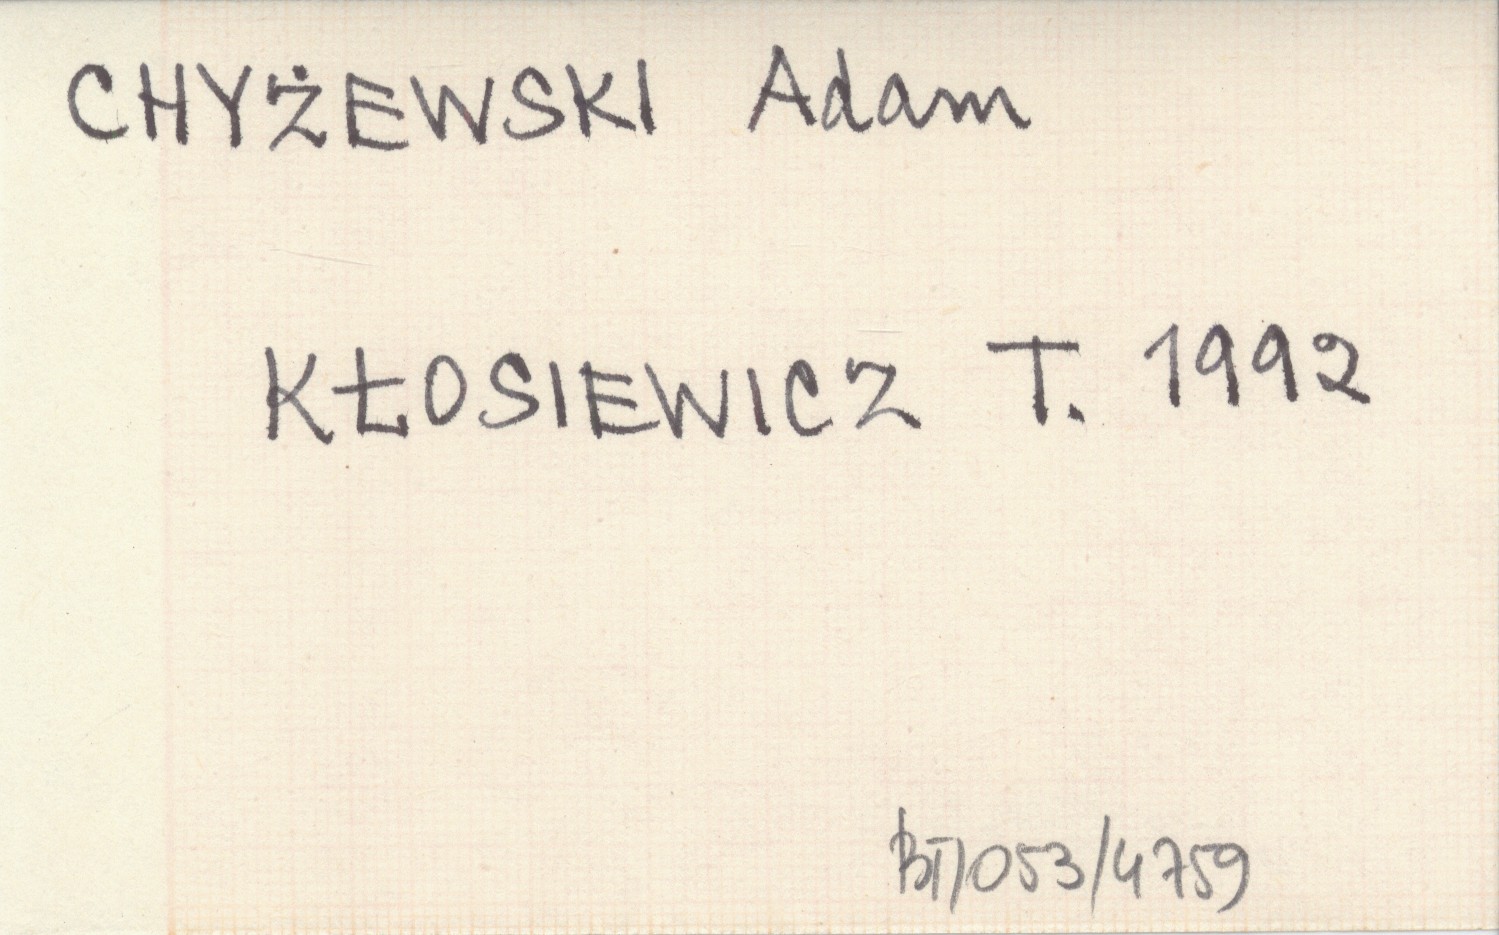 CHYŻEWSKI Adam
KŁOSIEWICZ T. 1992
BI/053/4759